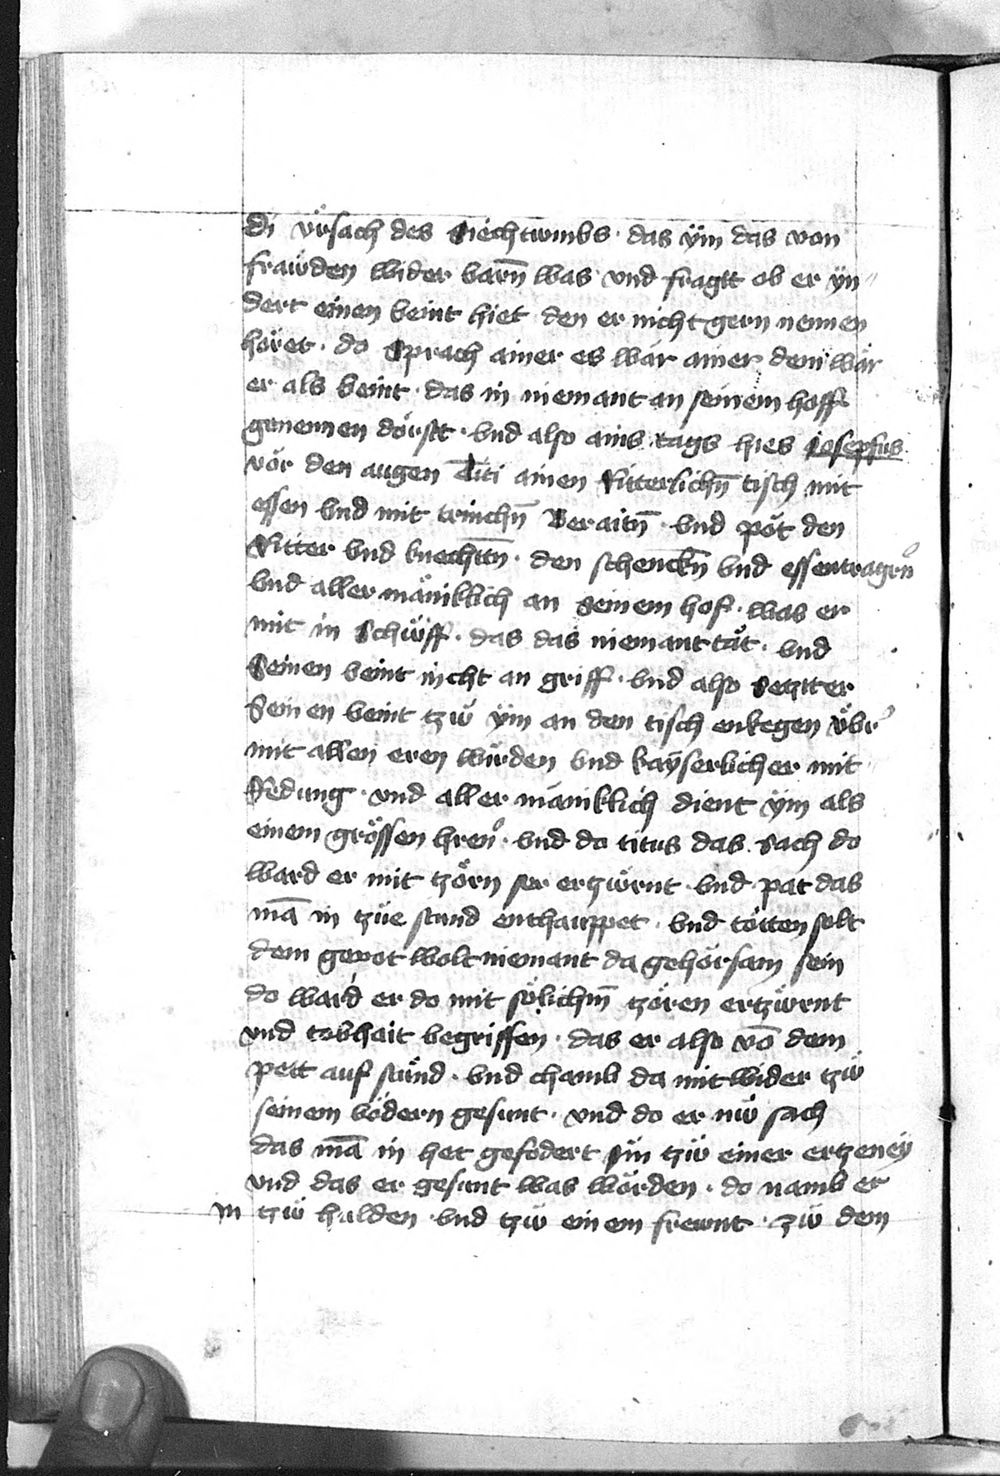 di vrsach des siechtwmbs · das ÿm das von
frawden wider varn̄ was vnd fragtt ob er yn
dert einen veint hiet den er nicht gern nennen
höret · do sprach ainer es wär ainer dem wär
er als veint · das in niemant an seinem hoff
genennen dörstt · vnd also ains tags hies Josepfus
vor den augen Titi ainen Ritterlichn̄ tisch mit
essen vnd mit trinchn̄ Beraitn̄ · vnd pot den
Ritter vnd knechttn̄ · den schenckn̄ vnd essentragrn
vnd aller mäniklich an seinem hof · was er
mit in schüff · das das niemant tät · vnd
seinen veint nicht an griff · vnd also setzt er
seinen veint tzw ÿm an den tisch enkegen vbr
mit allen eren würden vnd kayserlicher mit
Redung · vnd aller mäniklich dient ÿm als
einem grössen hren · vnd do titus das sach do
ward er mit tzorn ser ertzürnt · vnd pat das
mā in tzüe stund enthauppet · vnd tötten solt
dem gepot wolt niemant da gehorsam sein
do ward er do mit sölichm̄ tzoren ertzürnt
vnd tobhait begriffen · das er also vō dem
pett auf stünd · vnd chamb da mit wider tzw
seinem vödern gesunt · vnd do er nw sach
das mā in het gefodert sün tzw einer ertzeney
vnd das er gesunt was wörden · do namb er
in tzw hulden vnd tzw einem frewnt · zw dem